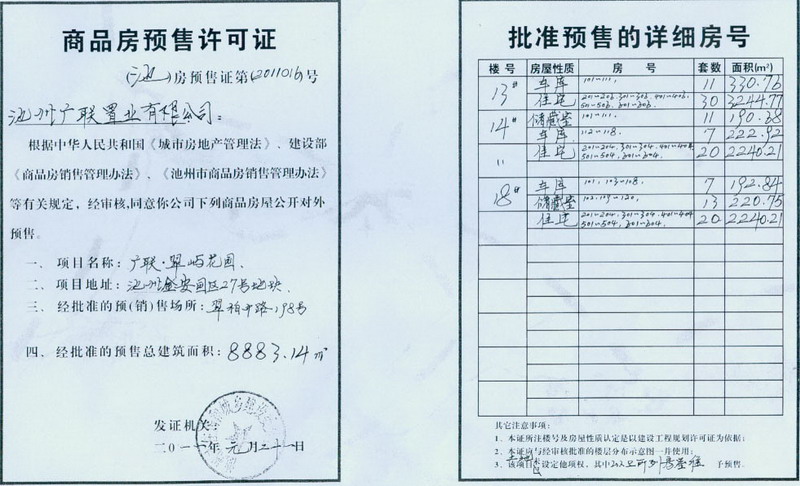 商品房预售许可证
(池)房预售证第(2011016)号
池州广联置业有限公司:
根据中华人民共和国《城市房地产管理法》、建设部
《商品房销售管理办法》、《池州市商品房销售管理办法》
等有关规定,经审核,同意你公司下列商品房屋公开对外
预售。
一、项目名称:广联·翠屿花园
二、项目地址:池州 27号地块
三、经批准的预(销)售场所:翠柏 路198号
四、经批准的预售总建筑面积:8883.14㎡
发证机关:
二〇一一年元月二十一日
批准预售的详细房号
楼号 房屋性质 房号 套数 面积(m²)
13# 车库 101~111. 11 330.76
住宅 201~206. 301~306. 401~406. 30 3244.77
501~506. 601~606.
14# 储藏室 101~111. 11 190.38
车库 112~118. 7 222.92
" 住宅 201~204. 301~304. 401~404. 20 2240.21
501~504. 601~604.
18# 车库 101, 103~108. 7 192.84
储藏室 102. 109~120. 13 220.75
住宅 201~204. 301~304. 401~404. 20 2240.21
501~504. 601~604.
其它注意事项:
1、本证所注楼号及房屋性质认定是以建设工程规划许可证为依据;
2、本证应与经审核批准的楼层分布示意图一并使用;
3、该项目 设定他项权,其中 予预售。